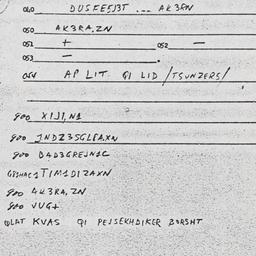 040 DUSFE5J3T ... AK3RN
050 AK3RA,ZN
051 + 052 —
053 —
054 AP LIT. QI LID /TSUNZERS/
900 XIJI,N1
900 JNDZ35GLPA,XN
900 D4D3GREJN1C
TIM1DIZAXN
900 4K3RA,ZN
900 VUG+
QLAT KVAS QI PEJSEKHDIKER BORSHT